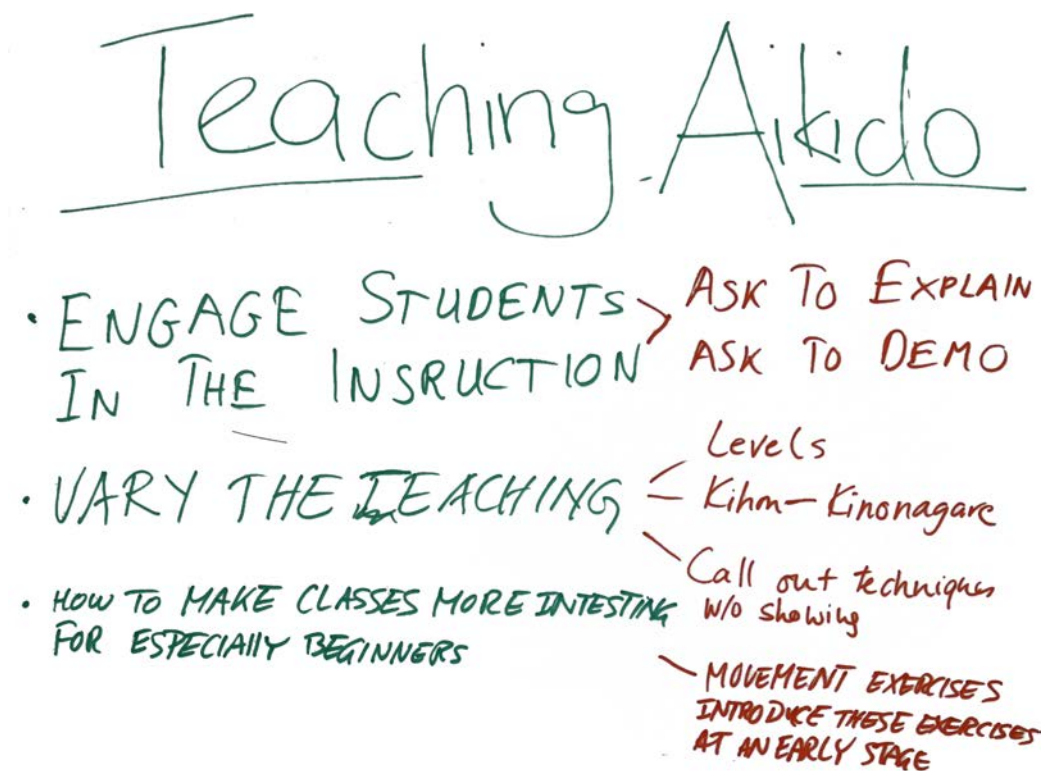 Teaching Aikido
• ENGAGE STUDENTS
IN THE INSRUCTION
ASK TO EXPLAIN
ASK TO DEMO
• VARY THE TEACHING
Levels
Kihon - Kinonagare
Call out techniques
w/o showing
• HOW TO MAKE CLASSES MORE INTESTING
FOR ESPECIALLY BEGINNERS
MOVEMENT EXERCISES
INTRODUCE THESE EXERCISES
AT AN EARLY STAGE